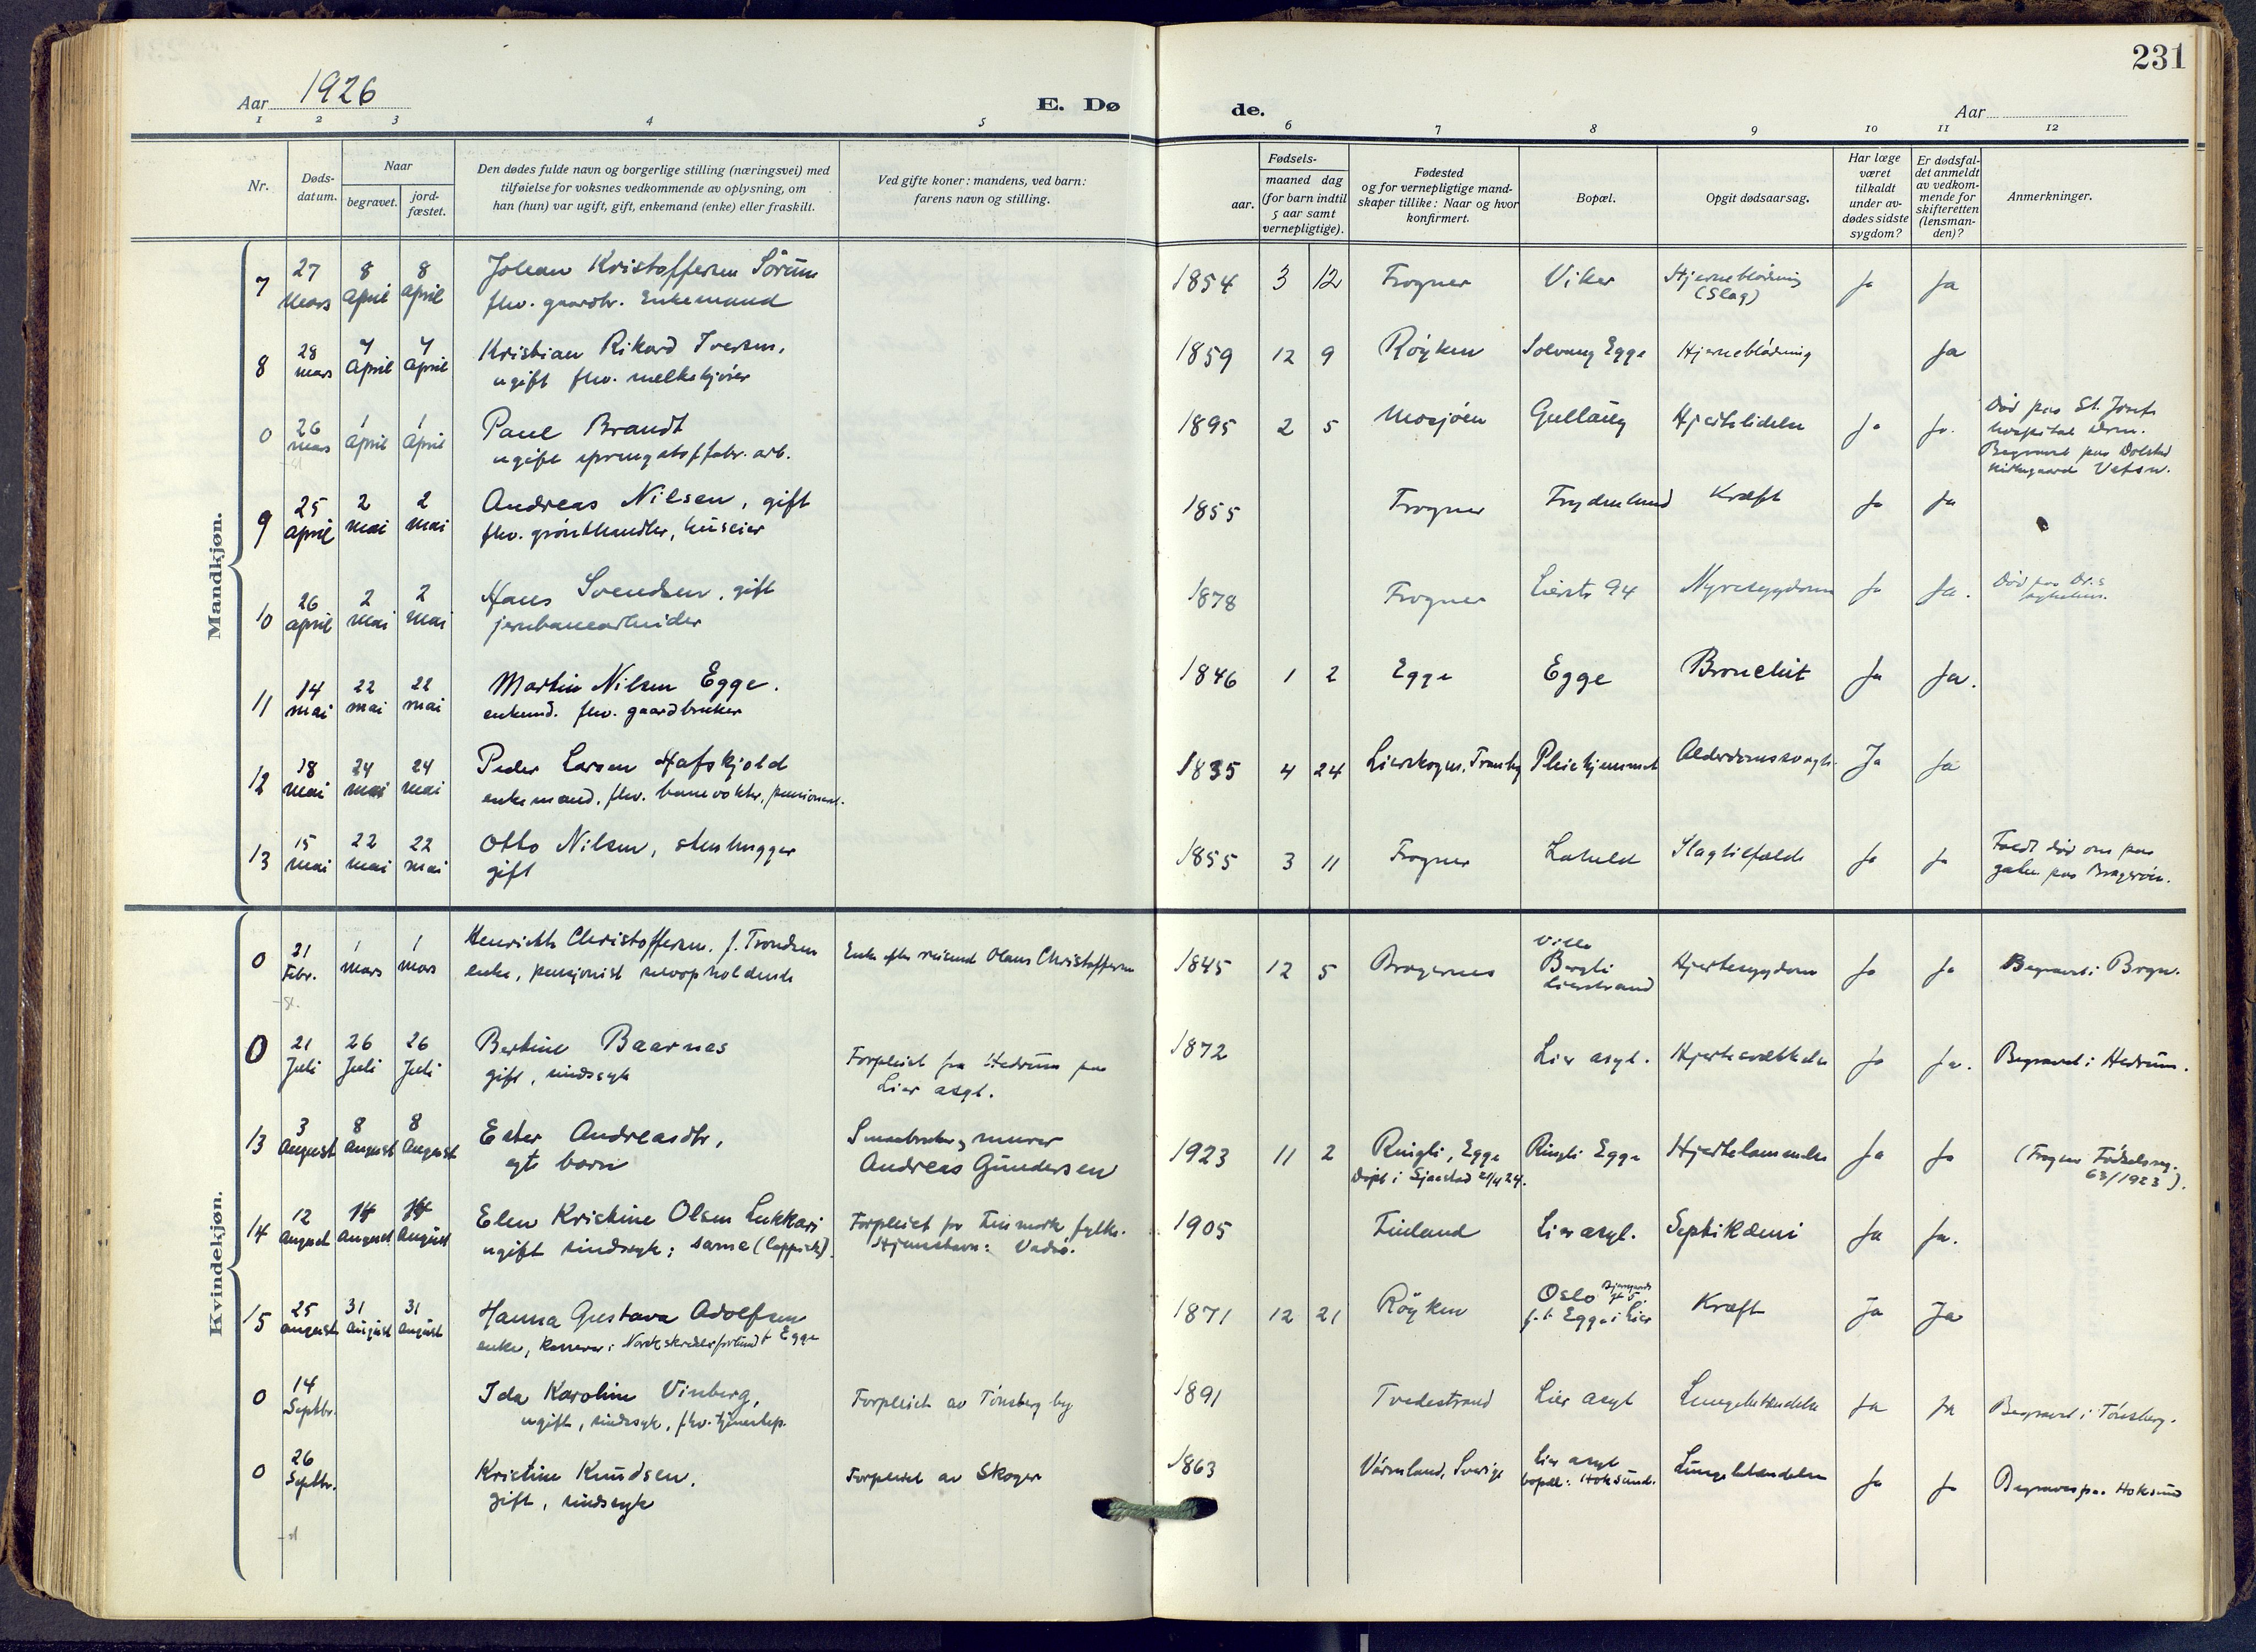 231
Aar 1926
E. Dø
de.
Aar
1 2 3 4 5
6 7 8 9 10 11 12
Nr.
Døds-
datum.
Naar
begravet.
jord-
fæstet.
Den dødes fulde navn og borgerlige stilling (næringsvei) med
tilføielse for voksnes vedkommende av oplysning, om
han (hun) var ugift, gift, enkemand (enke) eller fraskilt.
Ved gifte koner: mandens, ved barn:
farens navn og stilling.
Fødsels-
aar.
maaned dag
(for barn indtil
5 aar samt
vernepligtige).
Fødested
og for vernepligtige mand-
skaper tillike: Naar og hvor
konfirmert.
Bopæl.
Opgit dødsaarsag.
Har læge
været
tilkaldt
under av-
dødes sidste
sygdom?
Er dødsfal-
det anmeldt
av vedkom-
mende for
skifteretten
(lensman-
den)?
Anmerkninger.
Mandkjøn.
7 27 8 8 Johan Kristoffersen Sørum 1854 3 12 Frogner Viker Hjerneblødning Ja Ja
Mars April April fhv. gaardbr. Enkemand (Slag)
8 28 7 7 Kristian Rikard Iversen, 1859 12 9 Røyken Solvang Egge Hjerneblødning Ja
Mars April April ugift fhv. melkekjører
0 26 1 1 Paul Brandt 1895 2 5 Mosjøen Gullaug Hjertelidelse Ja Ja. Død paa St. Josefs
Mars April April ugift sprengstoffabr. arb. hospital Drm.
Begravet paa Dolstad
kirkegaard Vefsn.
9 25 2 2 Andreas Nilsen, gift 1855 Frogner Frydenlund Kræft Ja Ja
April Mai Mai fhv. grønthandler, huseier
10 26 2 2 Hans Svendsen, gift 1878 Frogner Lierstr 94 Nyresygdom Ja Ja. Død paa Dr.s
April Mai Mai jernbanearbeider sykehus.
11 14 22 22 Martin Nilsen Egge. 1846 1 2 Egge Egge Bronchit Ja Ja.
Mai Mai Mai enkemd. fhv. gaardbruker
12 18 24 24 Peder Larsen Hafskjold 1835 4 24 Lierskogen, Tranby Pleiehjemmet Alderdomssvagh. Ja Ja
Mai Mai Mai enkemand, fhv. banevokter, pensionist.
13 15 22 22 Otto Nilsen, stenhugger 1855 3 11 Frogner Laheld Slagtilfælde Ja Ja Faldt død om paa
Mai Mai Mai gift gaten paa Bragerøen.
Kvindekjøn.
0 21 1 1 Henriette Christoffersen. f. Trondsen Enke efter reisende Olaus Christoffersen 1845 12 5 Bragernes Villa Hjertesygdom Ja Ja Begravet i Bragn.
Febr. Mars Mars enke, pensjonist Bergli
Lierstrand
0 21 26 26 Bertine Baarnes Forpleiet fra Hedrum paa 1872 Lier asyl. Hjertesvækkelse Ja Ja. Begravet i Hedrum.
Juli Juli Juli gift, sindssyk Lier asyl.
13 3 8 8 Ester Andreasdtr, Smaabruker, murer 1923 11 2 Ringli, Egge Ringli Egge Hjertelammelse Ja Ja (Frogner Fødselsreg.
August August August egte barn Andreas Gundersen Døpt i Sjaastad 21/4 24. 63/1923).
14 12 14 14 Elen Kristine Olsen Lukkari Forpleiet for Finmark fylke. 1905 Finland Lier asyl. Septikæmi Ja Ja.
August August August ugift sindssyk; same (lappisk). Hjemstavn: Vadsø.
15 25 31 31 Hanna Gustava Adolfsen 1871 12 21 Røyken Oslo Kræft Ja Ja
August August August enke, kasserer i Norsk skrædderforbund f. t. Egge i Lier
0 14 Ida Karoline Vinberg, Forpleiet av Tønsberg by 1891 Tvedestrand Lier asyl Lungebetændelse Ja Ja Begravet i Tønsberg.
Septbr. ugift, sindssyk, fhv. tjenestep.
0 26 Kristine Knudsen. Forpleiet av Skoger 1863 Värmland, Sverige Lier asyl Lungebetændelse Ja Ja Begraves paa Hoksund
Septbr. gift, sindssyk bopæl: Hoksund.